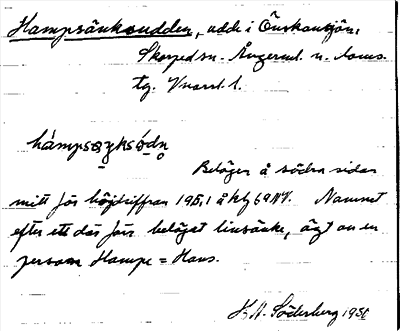 Hampsänksudden, udde i Önskansjön,
Skorped sn. Ångerml. n. doms.
tg. Vnorrl. l.
hámpsǫŋksó̧dn̥
Belägen å södra sidan
mitt för höjdsiffran 195,1 å kbl 69 NV. Namnet
efter ett där förr beläget linsänke, ägt av en
person Hampe = Hans.
H. A. Söderberg 1950